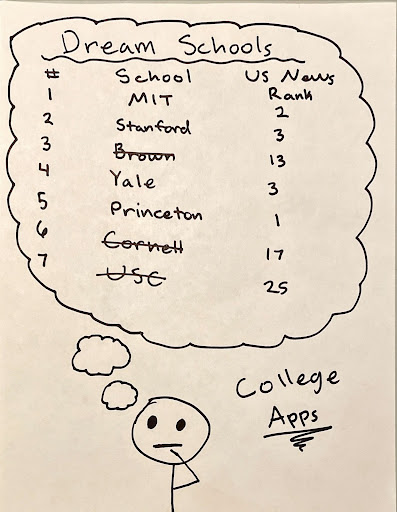 Dream Schools
# School US News Rank
1 MIT 2
2 Stanford 3
3 Brown 13
4 Yale 3
5 Princeton 1
6 Cornell 17
7 USC 25
College
Apps